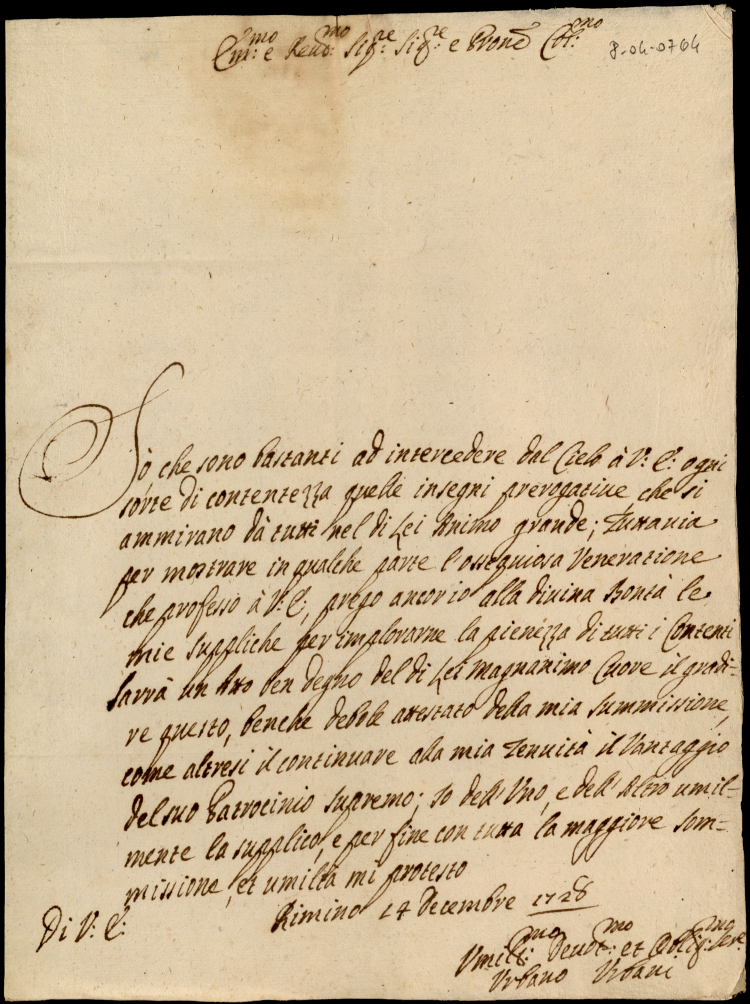 Em:mo e Reud:mo Sig:re Sig:re e Pron̄e Col:mo
8-04-0764
Sò che sono bastanti ad intercedere dal Cielo à V: E: ogni
sorte di contentezza quelle insegni prerogatiue che si
ammirano dà tutti nel di Lei Animo grande; Tuttauia
per mostrare in qualche parte l'ossequiosa Venerazione
che professo à V: E:, prego ancor io alla diuina Bontà le
mie suppliche per implorarne la pienezza di tutti i Contenti
Sarrà un Atto ben degno del di Lei magnanimo Cuore il gradi-
re questo, benche debole attestato della mia summissione,
come altresi il continuare alla mia Tenuità il Vantaggio
del suo Patrocinio supremo; Io dell'Uno, e dell'Altro umil-
mente la supplico, e per fine con tutta la maggiore som-
missione, et umiltà mi protesto
Di V: E:
Rimino 14 Decembre 1728
Vmiliss:mo Deuot:mo et Oblig:mo Seru:e
Vrbano Vrbani